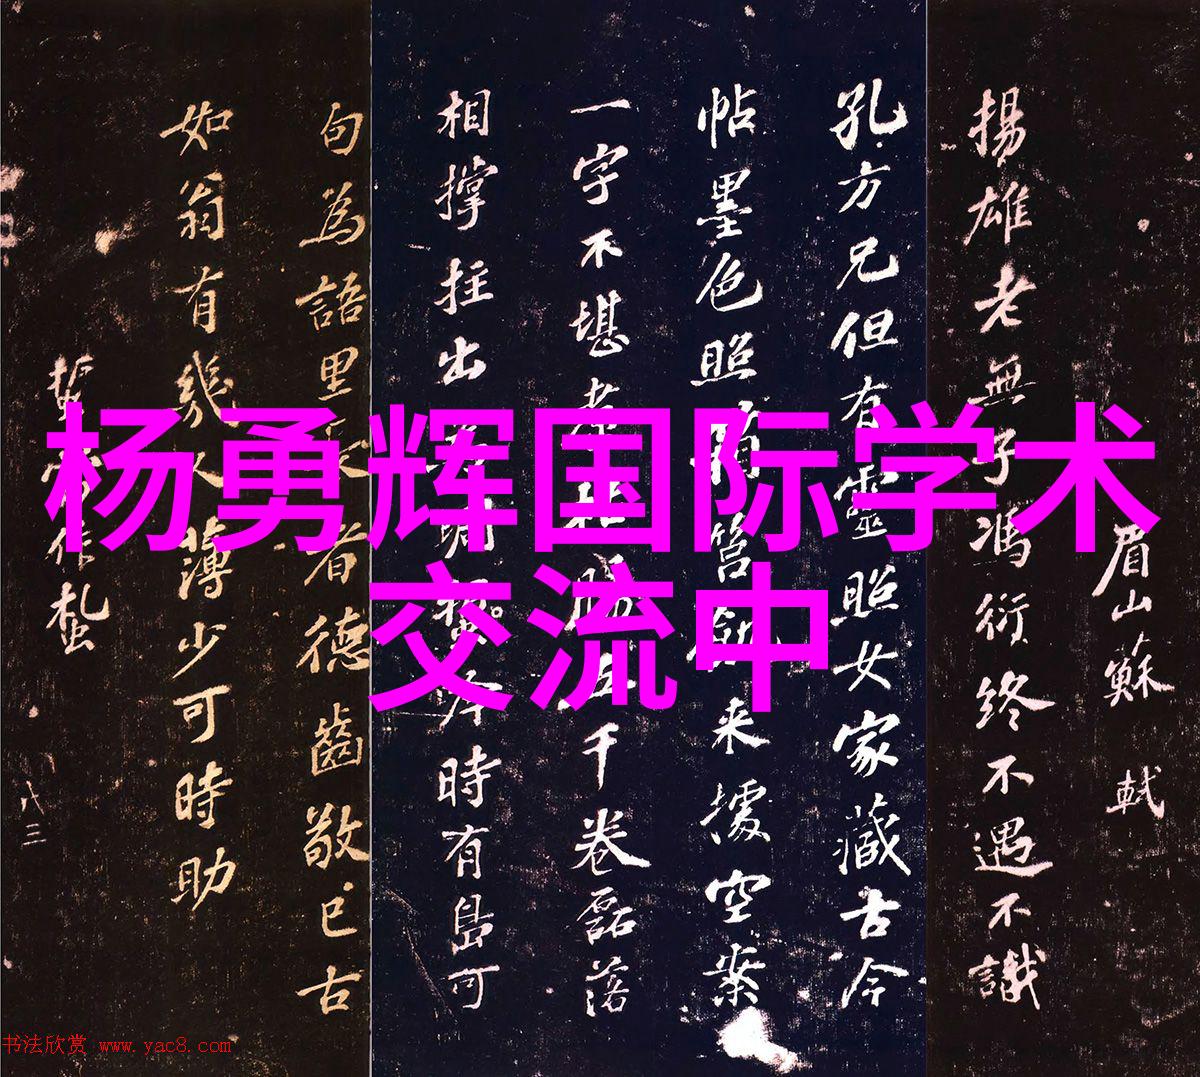 杨勇辉国际学术
交流中
眉山蘇軾
揚雄老無子馮衍終不遇不識
孔方兄但有靈照女家藏古今
帖墨色照箱筥飢来據空案
一字不堪煮枯腸五千卷磊落
相撑拄出時有島可
句為語里長者德齒敬已古
如翁有幾人薄少可時助
作
八三
书法欣赏 www.yac8.com